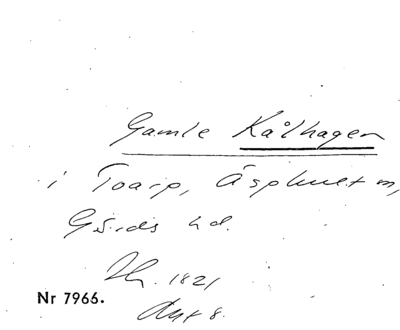 Gamle Kålhagen
i Toarp, Äsphult m,
Gärds hd.
1821
Nr 7966.
Akt 8.